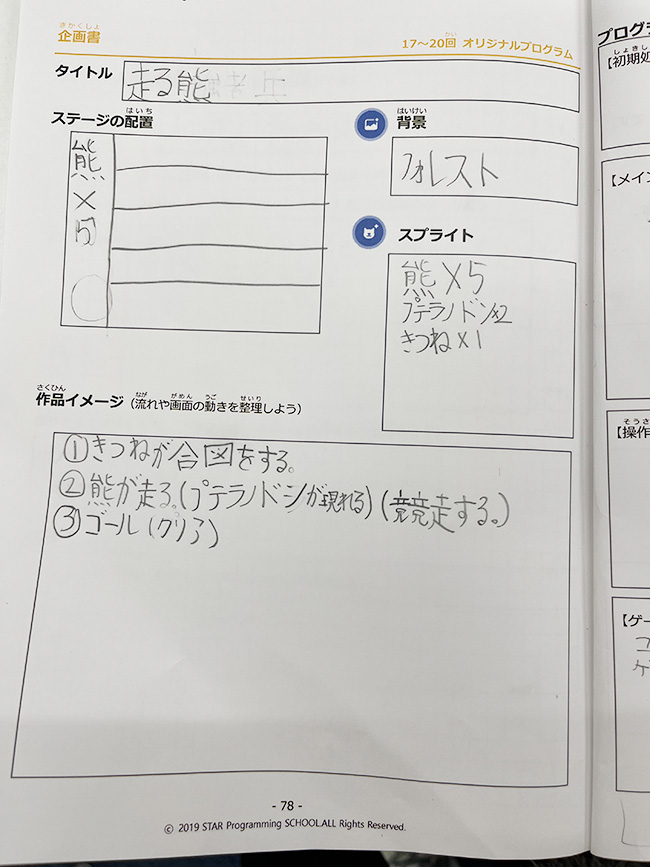 きかくしょ
企画書
かい
17～20回 オリジナルプログラム
タイトル
走る熊
はいち
ステージの配置
熊
×
5
はいけい
背景
フォレスト
スプライト
熊×5
プテラノドン×2
きつね×1
さくひん なが がめん うご せいり
作品イメージ（流れや画面の動きを整理しよう）
①きつねが合図をする。
②熊が走る。(プテラノドンが現れる)(競走する。)
③ゴール(クリア)
- 78 -
© 2019 STAR Programming SCHOOL.ALL Rights Reserved.
プログラ
しょきし
【初期処
【メイン
そうさ
【操作
【ゲー